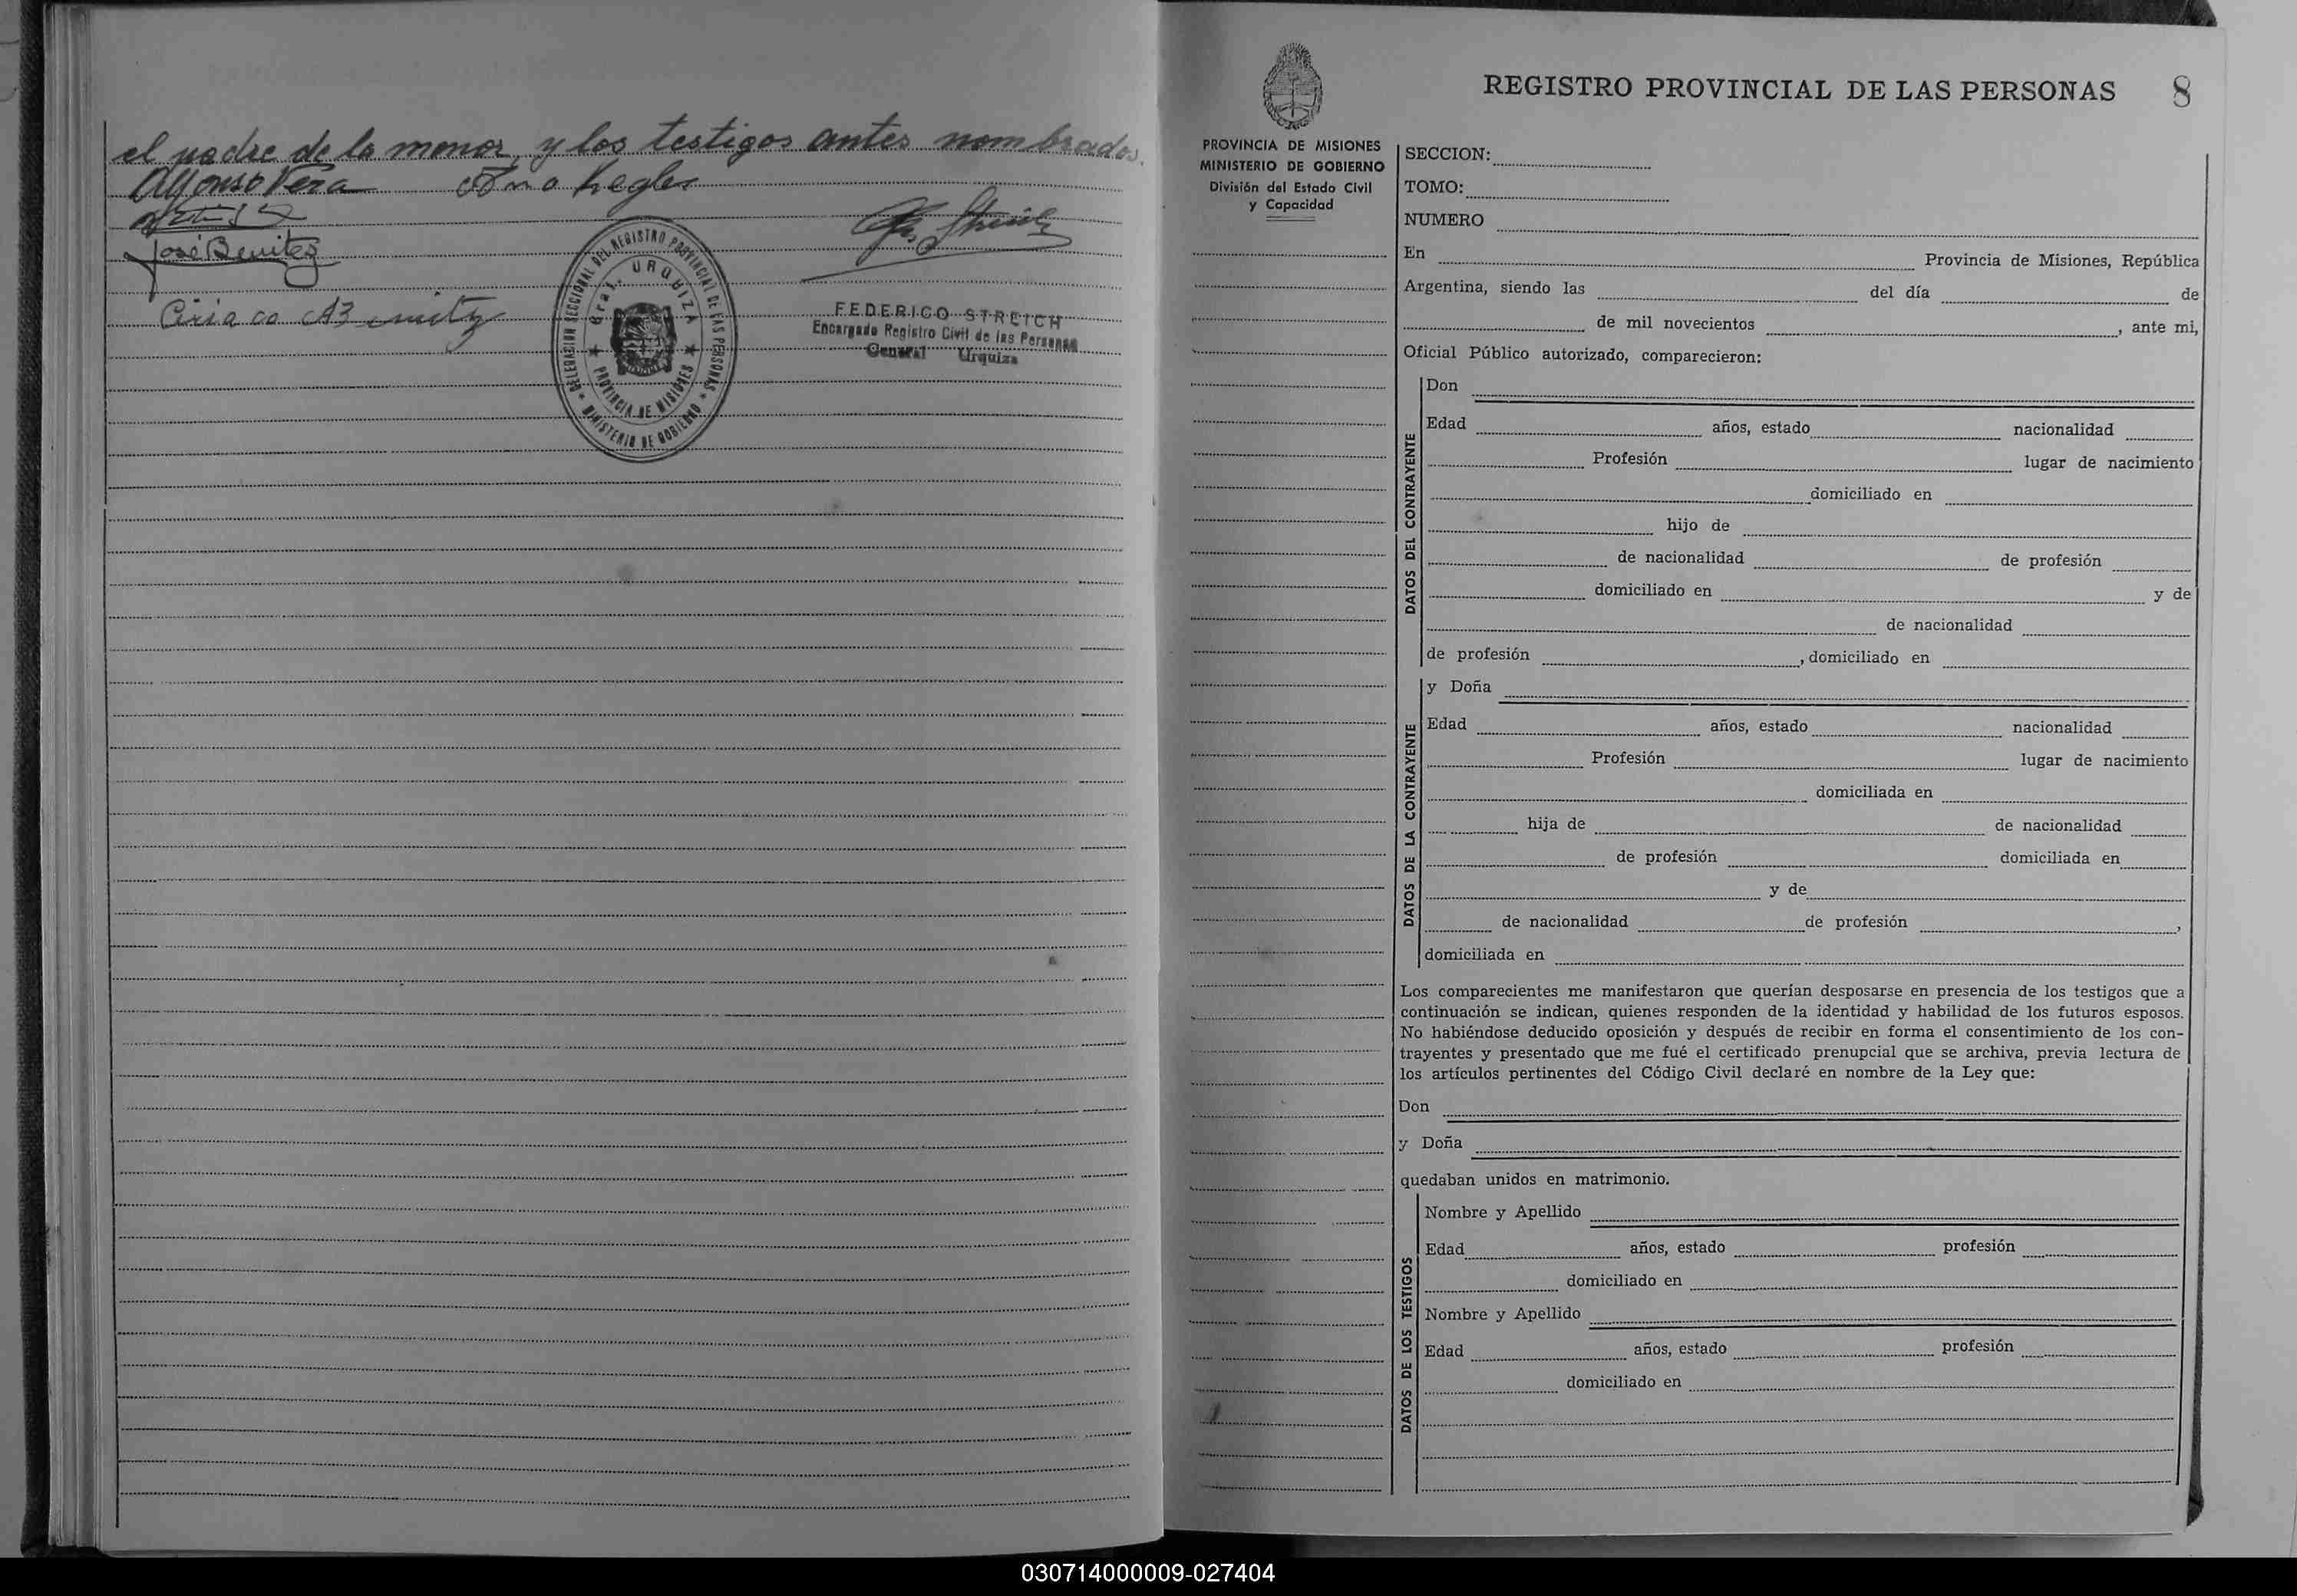 el padre de la menor, y los testigos antes nombrados.
Alfonso Vera
José Benitez
Ciriaco Benitez
DELEGACION SECCIONAL DEL REGISTRO PROVINCIAL DE LAS PERSONAS
Gral. URQUIZA
PROVINCIA DE MISIONES
MINISTERIO DE GOBIERNO
FEDERICO STREICH
Encargado Registro Civil de las Personas
General Urquiza
REGISTRO PROVINCIAL DE LAS PERSONAS 8
PROVINCIA DE MISIONES
MINISTERIO DE GOBIERNO
División del Estado Civil
y Capacidad
SECCION:
TOMO:
NUMERO
En Provincia de Misiones, República
Argentina, siendo las del día de
de mil novecientos , ante mi,
Oficial Público autorizado, comparecieron:
DATOS DEL CONTRAYENTE
Don
Edad años, estado nacionalidad
Profesión lugar de nacimiento
domiciliado en
hijo de
de nacionalidad de profesión
domiciliado en y de
de nacionalidad
de profesión , domiciliado en
DATOS DE LA CONTRAYENTE
y Doña
Edad años, estado nacionalidad
Profesión lugar de nacimiento
domiciliada en
hija de de nacionalidad
de profesión domiciliada en
y de
de nacionalidad de profesión ,
domiciliada en
Los comparecientes me manifestaron que querían desposarse en presencia de los testigos que a
continuación se indican, quienes responden de la identidad y habilidad de los futuros esposos.
No habiéndose deducido oposición y después de recibir en forma el consentimiento de los con-
trayentes y presentado que me fué el certificado prenupcial que se archiva, previa lectura de
los artículos pertinentes del Código Civil declaré en nombre de la Ley que:
Don
y Doña
quedaban unidos en matrimonio.
DATOS DE LOS TESTIGOS
Nombre y Apellido
Edad años, estado profesión
domiciliado en
Nombre y Apellido
Edad años, estado profesión
domiciliado en
030714000009-027404